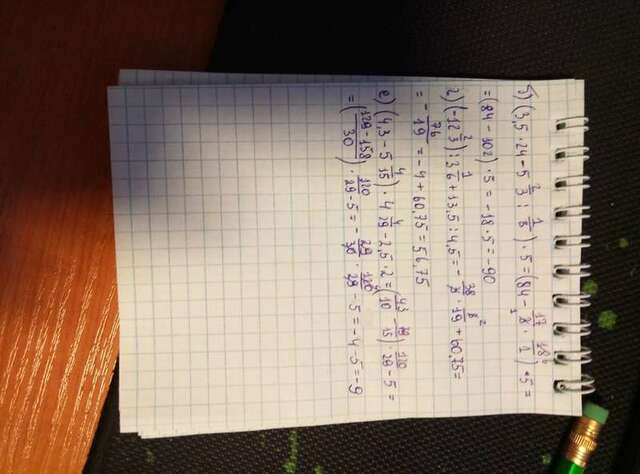 б) (3,5 · 24 - 5 2/3 : 1/8) · 5 = (84 - 17/3 · 18/1) · 5 =
= (84 - 102) · 5 = -18 · 5 = -90
г) (-12 2/3) : 3 1/6 + 13,5 : 4,5 = - 38/3 · 6/19 + 60,75 =
= - 76/19 = -4 + 60,75 = 56,75
е) (4,3 - 5 4/15) · 4 4/29 - 2,5 · 2 = (43/10 - 79/15) · 120/29 - 5 =
= (129 - 158/30) · 120/29 - 5 = - 29/30 · 120/29 - 5 = -4 - 5 = -9